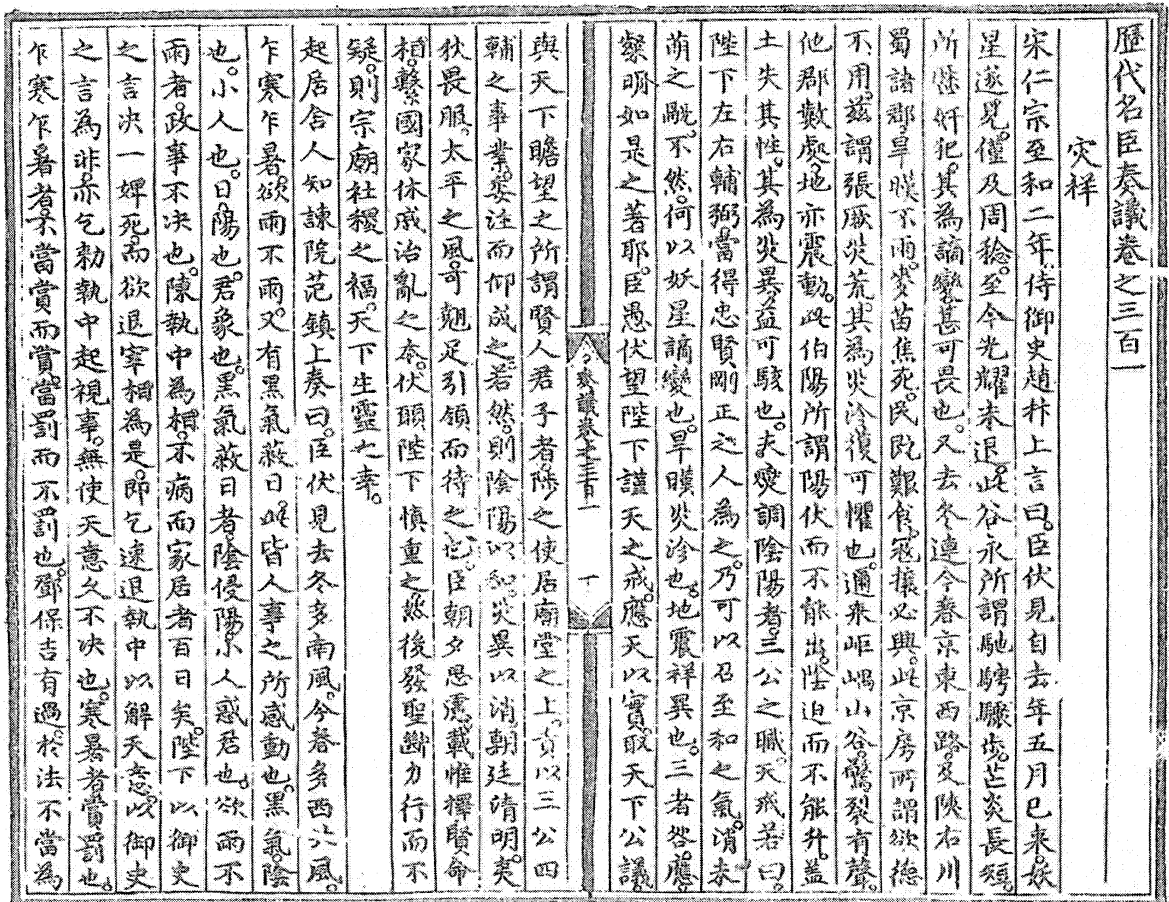 歷代名臣奏議卷之三百一
灾祥
宋仁宗至和二年侍御史趙抃上言曰臣伏見自去年五月已来妖
星遂見僅及周稔至今光耀未退此谷永所謂馳騁驟步芒炎長短
所歷奸犯其為謫變甚可畏也又去冬連今春京東西路及陝右川
蜀諸郡旱暵不雨麥苗焦死民既艱食寇攘必興此京房所謂欲德
不用茲謂張厥灾荒其為灾沴復可懼也邇来岠嵎山谷驚裂有聲
他郡數處地亦震動此伯陽所謂陽伏而不能出陰迫而不能升盖
土失其性其為灾異益可駭也夫燮調陰陽者三公之職天戒若曰
陛下左右輔弼當得忠賢剛正之人為之乃可以召至和之氣消未
萌之眚不然何以妖星謫變也旱暵灾沴也地震祥異也三者咎應
粲明如是之著耶臣愚伏望陛下謹天之戒應天以實取天下公議
與天下瞻望之所謂賢人君子者陟之使居廟堂之上責以三公四
輔之事業委注而仰成之若然則陰陽以和灾異以消朝廷清明夷
狄畏服太平之風可翹足引領而待之也臣朝夕思慮載惟擇賢命
相繫國家休戚治亂之本伏願陛下慎重之然後發聖斷力行而不
疑則宗廟社稷之福天下生靈之幸
起居舍人知諫院范鎮上奏曰臣伏見去冬多南風今春多西北風
乍寒乍暑欲雨不雨又有黑氣蔽日此皆人事之所感動也黑氣陰
也小人也日陽也君象也黑氣蔽日者陰侵陽小人惑君也欲雨不
雨者政事不决也陳執中為相不病而家居者百日矣陛下以御史
之言决一婢死而欲退宰相為是即乞速退執中以解天意以御史
之言為非亦乞勑執中起視事無使天意久不决也寒暑者賞罰也
乍寒乍暑者不當賞而賞當罰而不罰也鄧保吉有過於法不當為
奏議卷之三百一